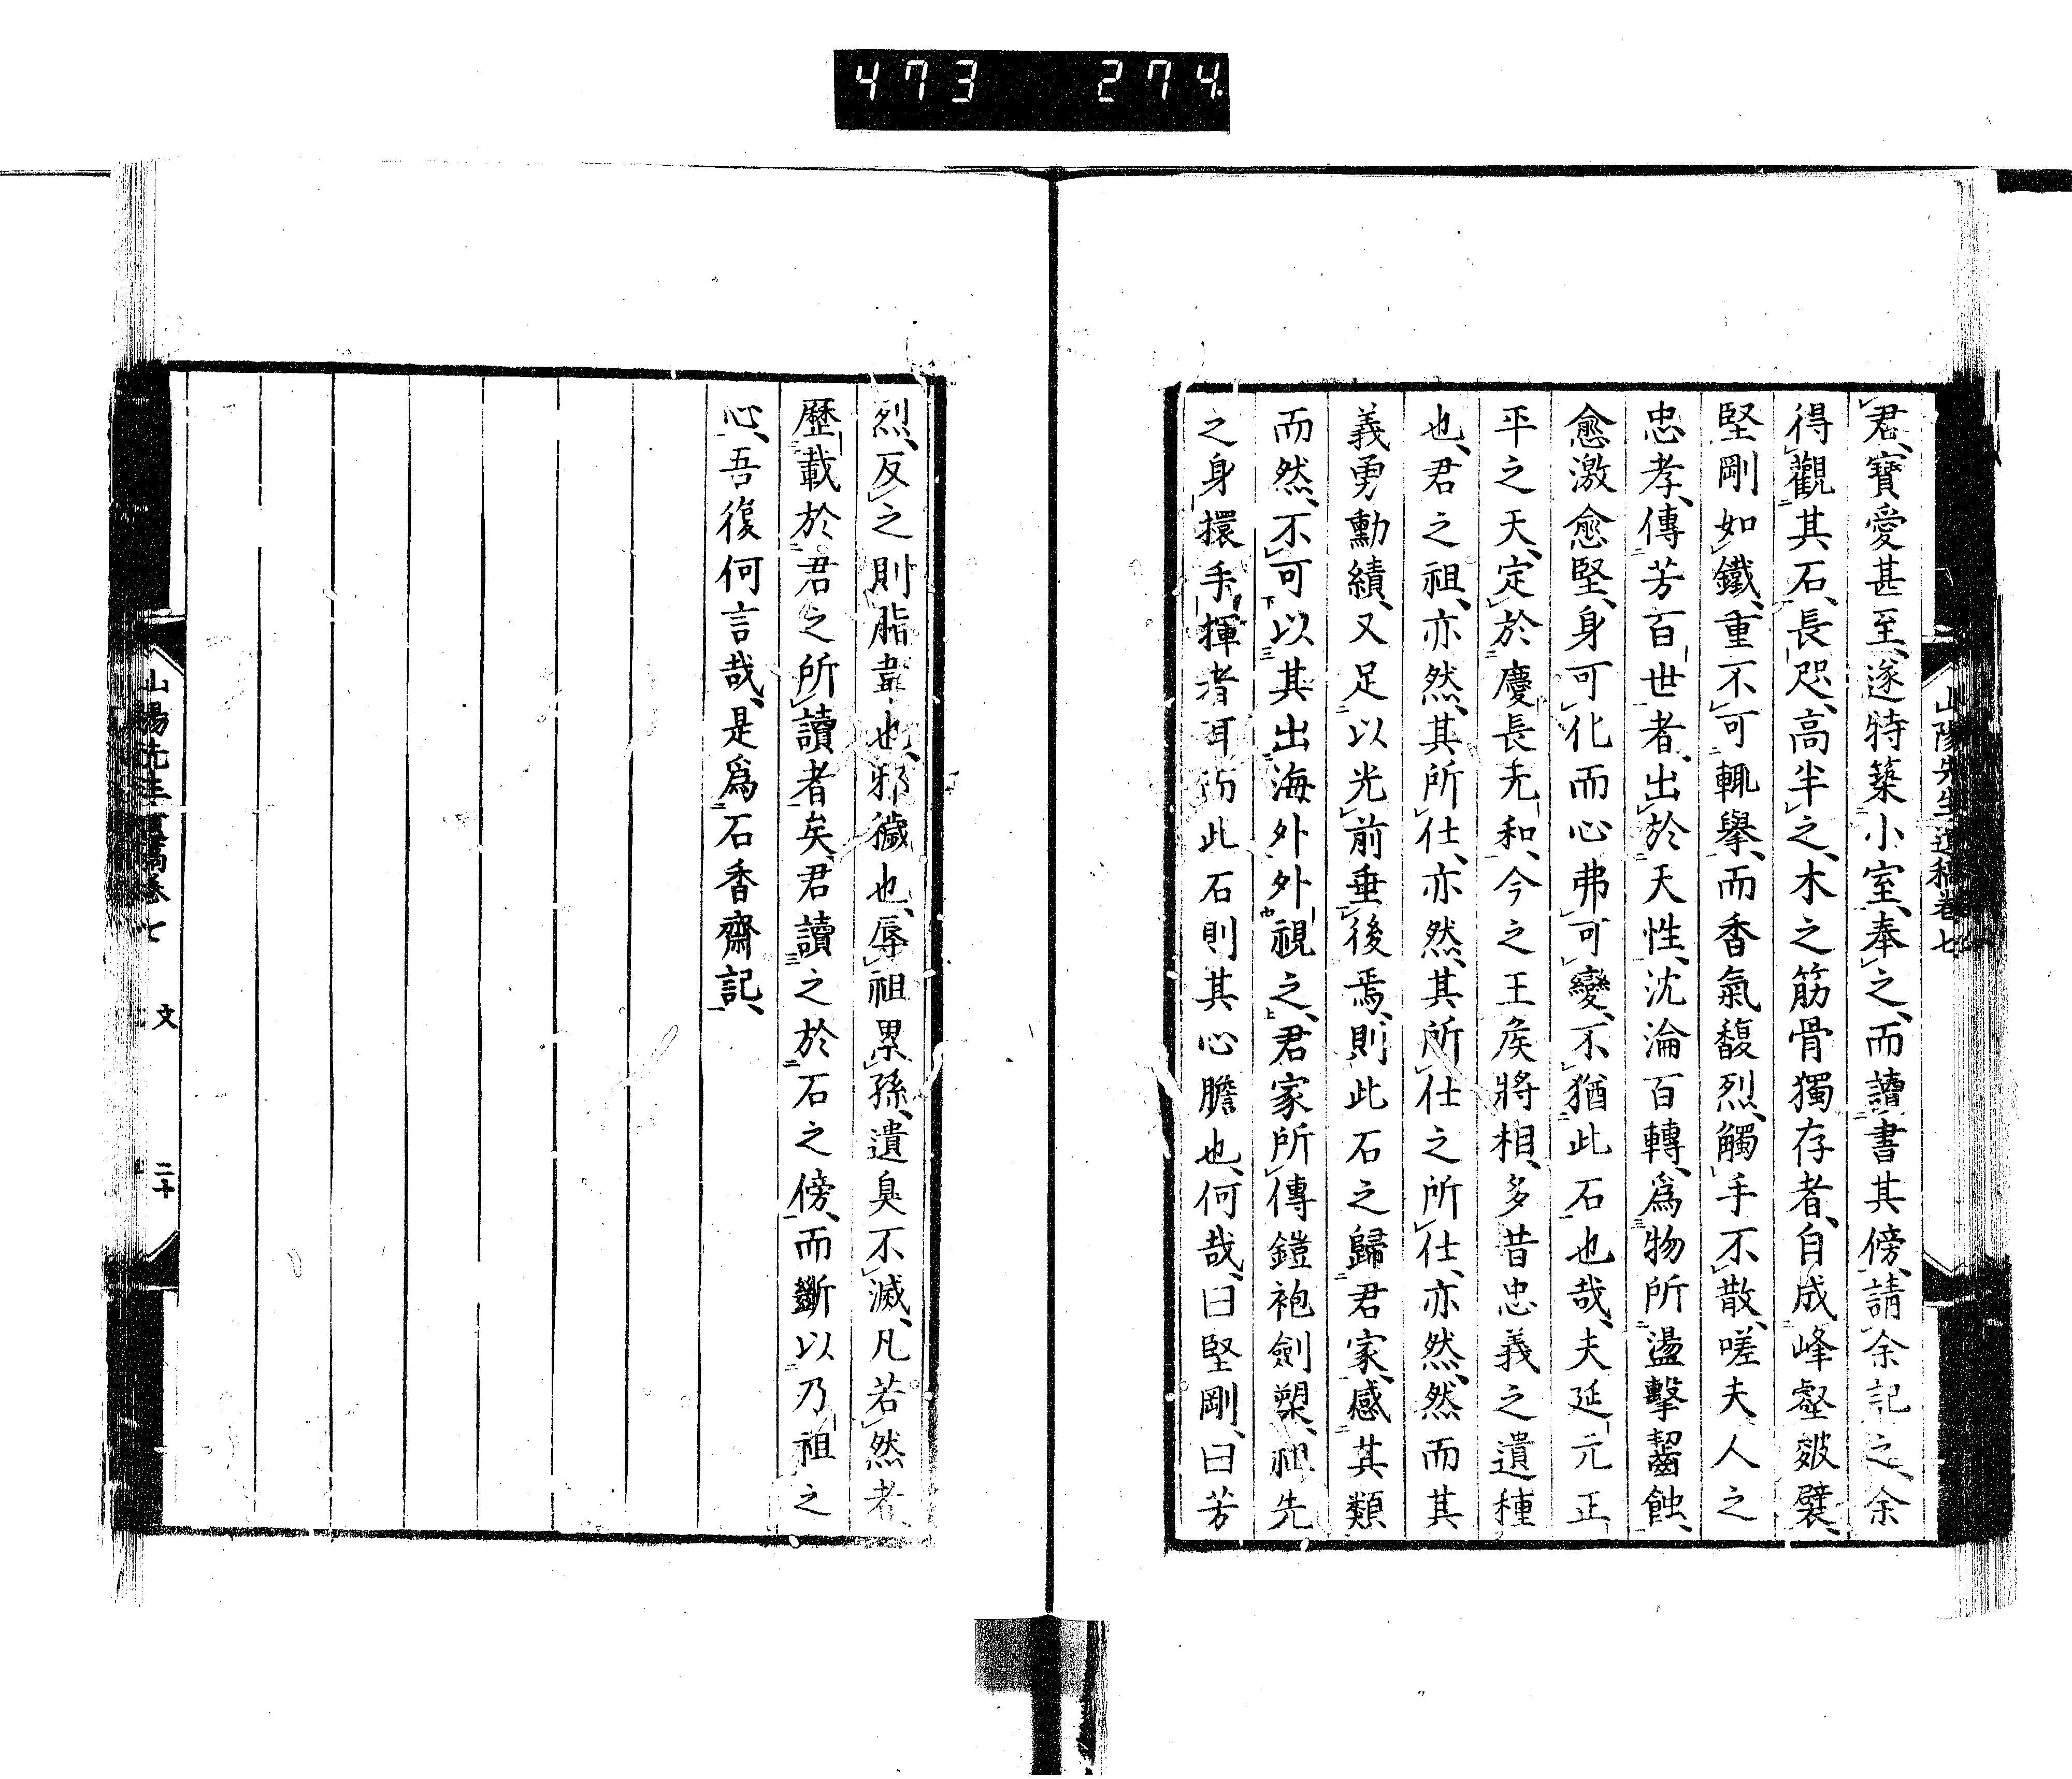 473 274
山陽先生遺稿卷七
君、寶愛甚至、遂特築小室、奉之、而讀書其傍、請余記之、余
得觀其石、長咫、高半之、木之筋骨獨存者、自成峰壑皴襞、
堅剛如鐵、重不可輒擧、而香氣馥烈、觸手不散、嗟夫人之
忠孝、傳芳百世者、出於天性、沈淪百轉、爲物所盪擊齧蝕、
愈激愈堅、身可化而心弗可變、不猶此石也哉、夫延元正
平之天、定於慶長元和、今之王侯將相、多昔忠義之遺種
也、君之祖、亦然、其所仕、亦然、其所仕之所仕、亦然、然而其
義勇勳績、又足以光前垂後焉、則此石之歸君家、感其類
而然、不可以其出海外外視之、君家所傳鎧袍劍槊、祖先
之身擐手揮者耳、而此石則其心膽也、何哉、曰堅剛、曰芳
烈、反之則脂韋也、邪穢也、辱祖累孫、遺臭不滅、凡若然者、
歷載於君之所讀者矣、君讀之於石之傍、而斷以乃祖之
心、吾復何言哉、是爲石香齋記、
山陽先生遺稿卷七
文
二十